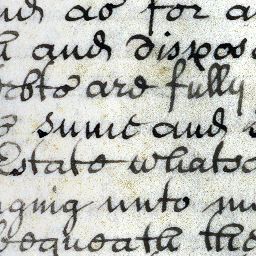 and as for a
and dispos
debts are fully
sume and
Estate whatso
ging unto m
Bequeath the